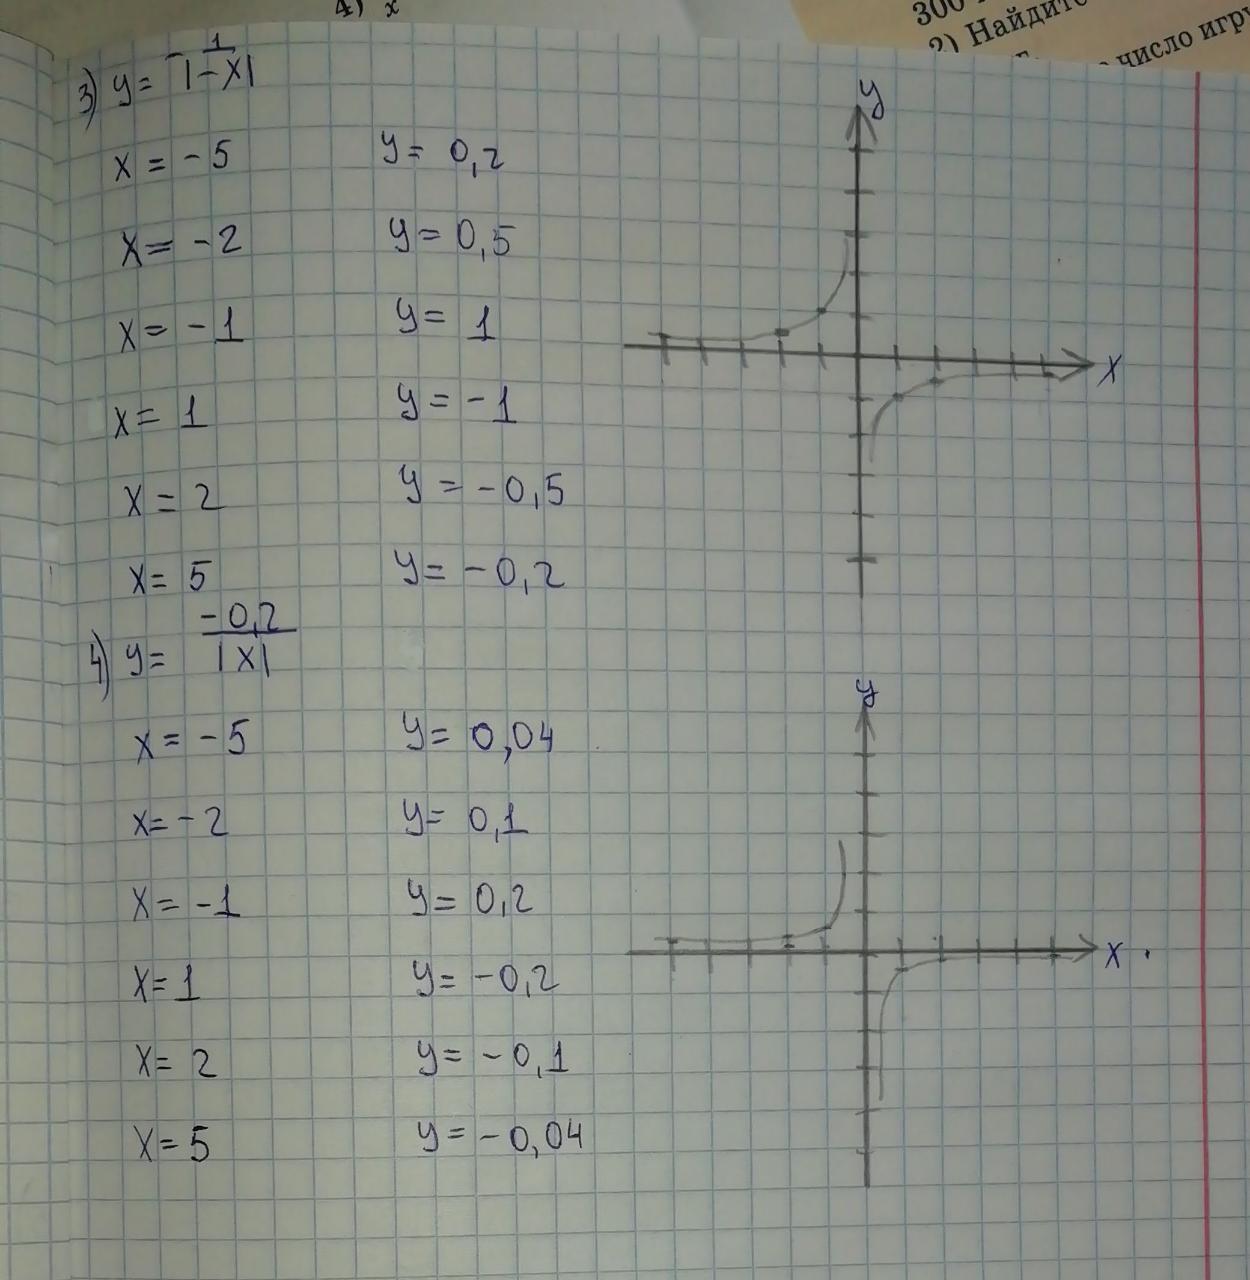 4) x
300
2) Найдите
число игру
3) y = - 1/|-x|
x = -5 y = 0,2
x = -2 y = 0,5
x = -1 y = 1
x = 1 y = -1
x = 2 y = -0,5
x = 5 y = -0,2
y
x
4) y = -0,2/|x|
x = -5 y = 0,04
x = -2 y = 0,1
x = -1 y = 0,2
x = 1 y = -0,2
x = 2 y = -0,1
x = 5 y = -0,04
y
x